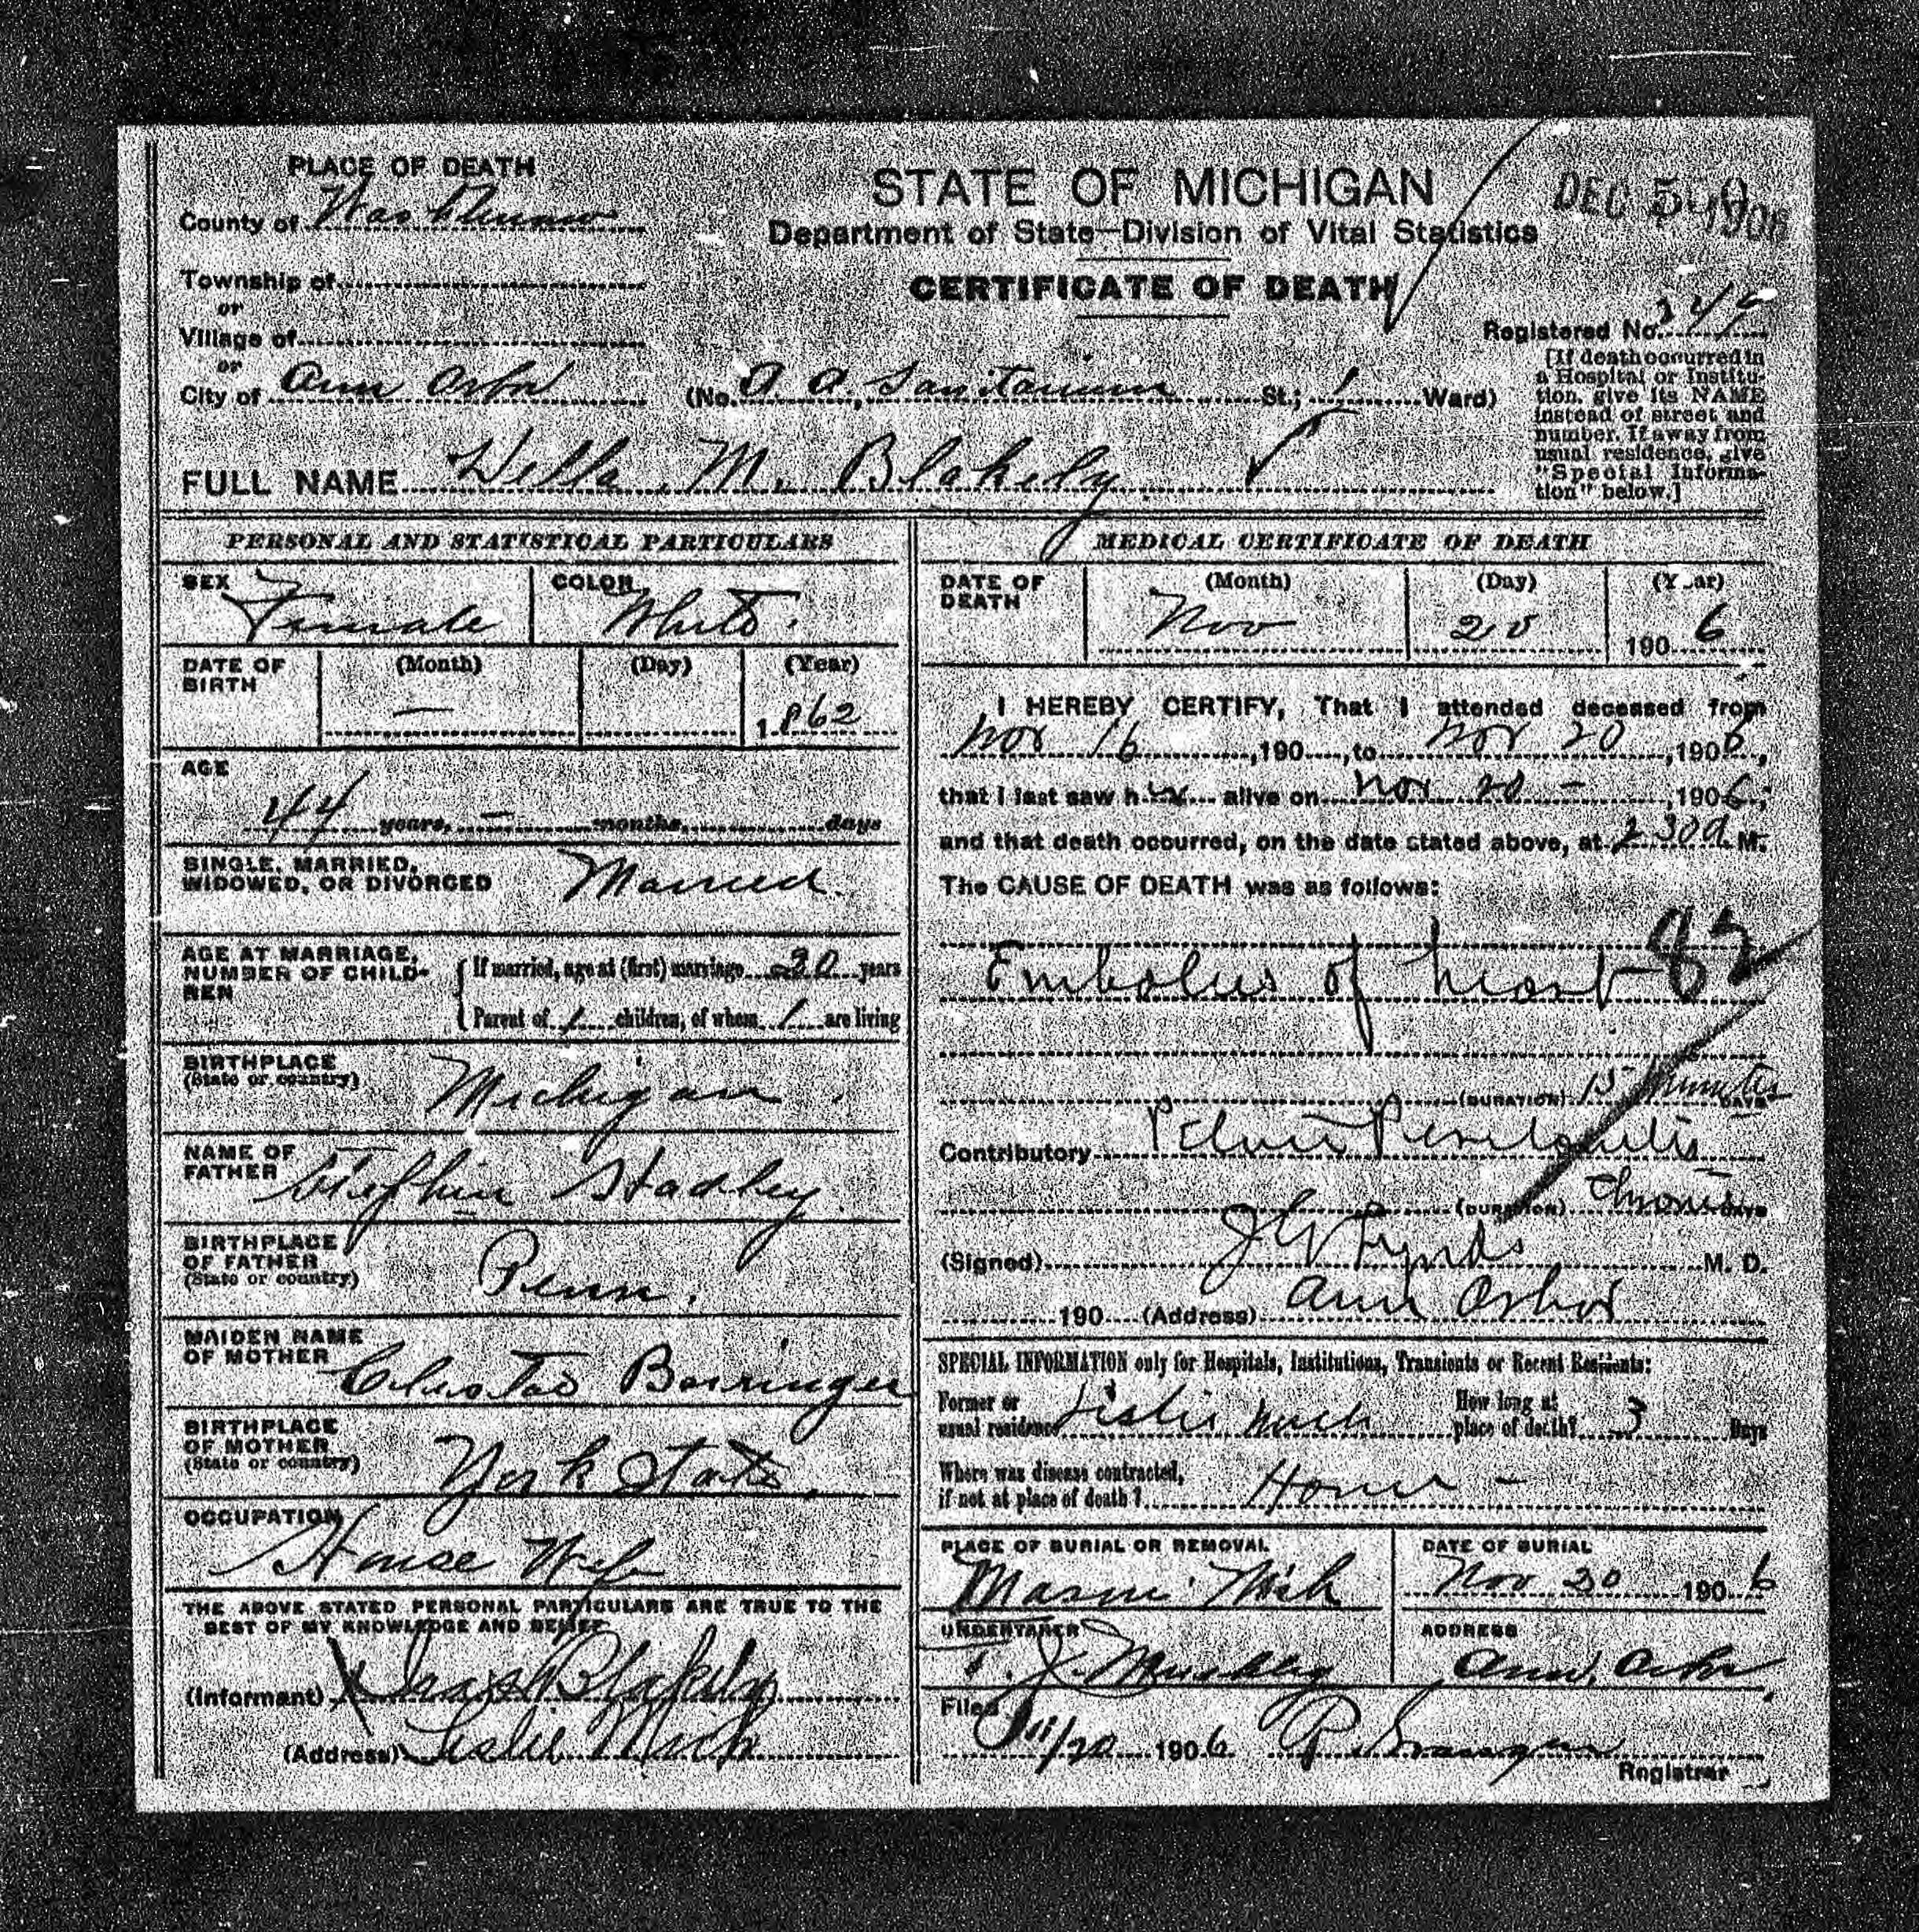 PLACE OF DEATH
County of Washtenaw
Township of
or
Village of
or
City of Ann Arbor
STATE OF MICHIGAN
Department of State—Division of Vital Statistics
CERTIFICATE OF DEATH
DEC 5 1906
Registered No.
(No. A. A. Sanitarium St.; 1 Ward)
[If death occurred in
a Hospital or Institu-
tion, give its NAME
instead of street and
number. If away from
usual residence, give
"Special Informa-
tion" below.]
FULL NAME Della M. Blakely
PERSONAL AND STATISTICAL PARTICULARS
SEX Female
COLOR White.
DATE OF BIRTH
(Month) (Day) (Year)
— 1862
AGE
44 years, — months, days
SINGLE, MARRIED,
WIDOWED, OR DIVORCED Married.
AGE AT MARRIAGE,
NUMBER OF CHILD-
REN
If married, age at (first) marriage years
Parent of 1 children, of whom 1 are living
BIRTHPLACE
(State or country) Michigan.
NAME OF
FATHER Stephen Stadley
BIRTHPLACE
OF FATHER
(State or country) Penn.
MAIDEN NAME
OF MOTHER Barringer
BIRTHPLACE
OF MOTHER
(State or country) York State.
OCCUPATION
House Wife
THE ABOVE STATED PERSONAL PARTICULARS ARE TRUE TO THE
BEST OF MY KNOWLEDGE AND BELIEF
(Informant) Blakely
(Address) Leslie Mich
MEDICAL CERTIFICATE OF DEATH
DATE OF DEATH
(Month) (Day) (Year)
Nov 20 1906
I HEREBY CERTIFY, That I attended deceased from
Nov 16, 190 , to Nov 20, 1906,
that I last saw her alive on Nov 20 —, 1906;
and that death occurred, on the date stated above, at 2 30 a M.
The CAUSE OF DEATH was as follows:
82
Embolus of heart
(DURATION) 15 minutes DAYS
Contributory Pelvic Peritonitis
(DURATION) Chronic DAYS
(Signed) M. D.
190 (Address) Ann Arbor
SPECIAL INFORMATION only for Hospitals, Institutions, Transients or Recent Residents:
Former or
usual residence Leslie Mich
How long at
place of death? 3 Days
Where was disease contracted,
if not at place of death? Home —
PLACE OF BURIAL OR REMOVAL
Mason Mich
DATE OF BURIAL
Nov 20 1906
UNDERTAKER
ADDRESS
Ann Arbor
Filed
11/20 1906
Registrar